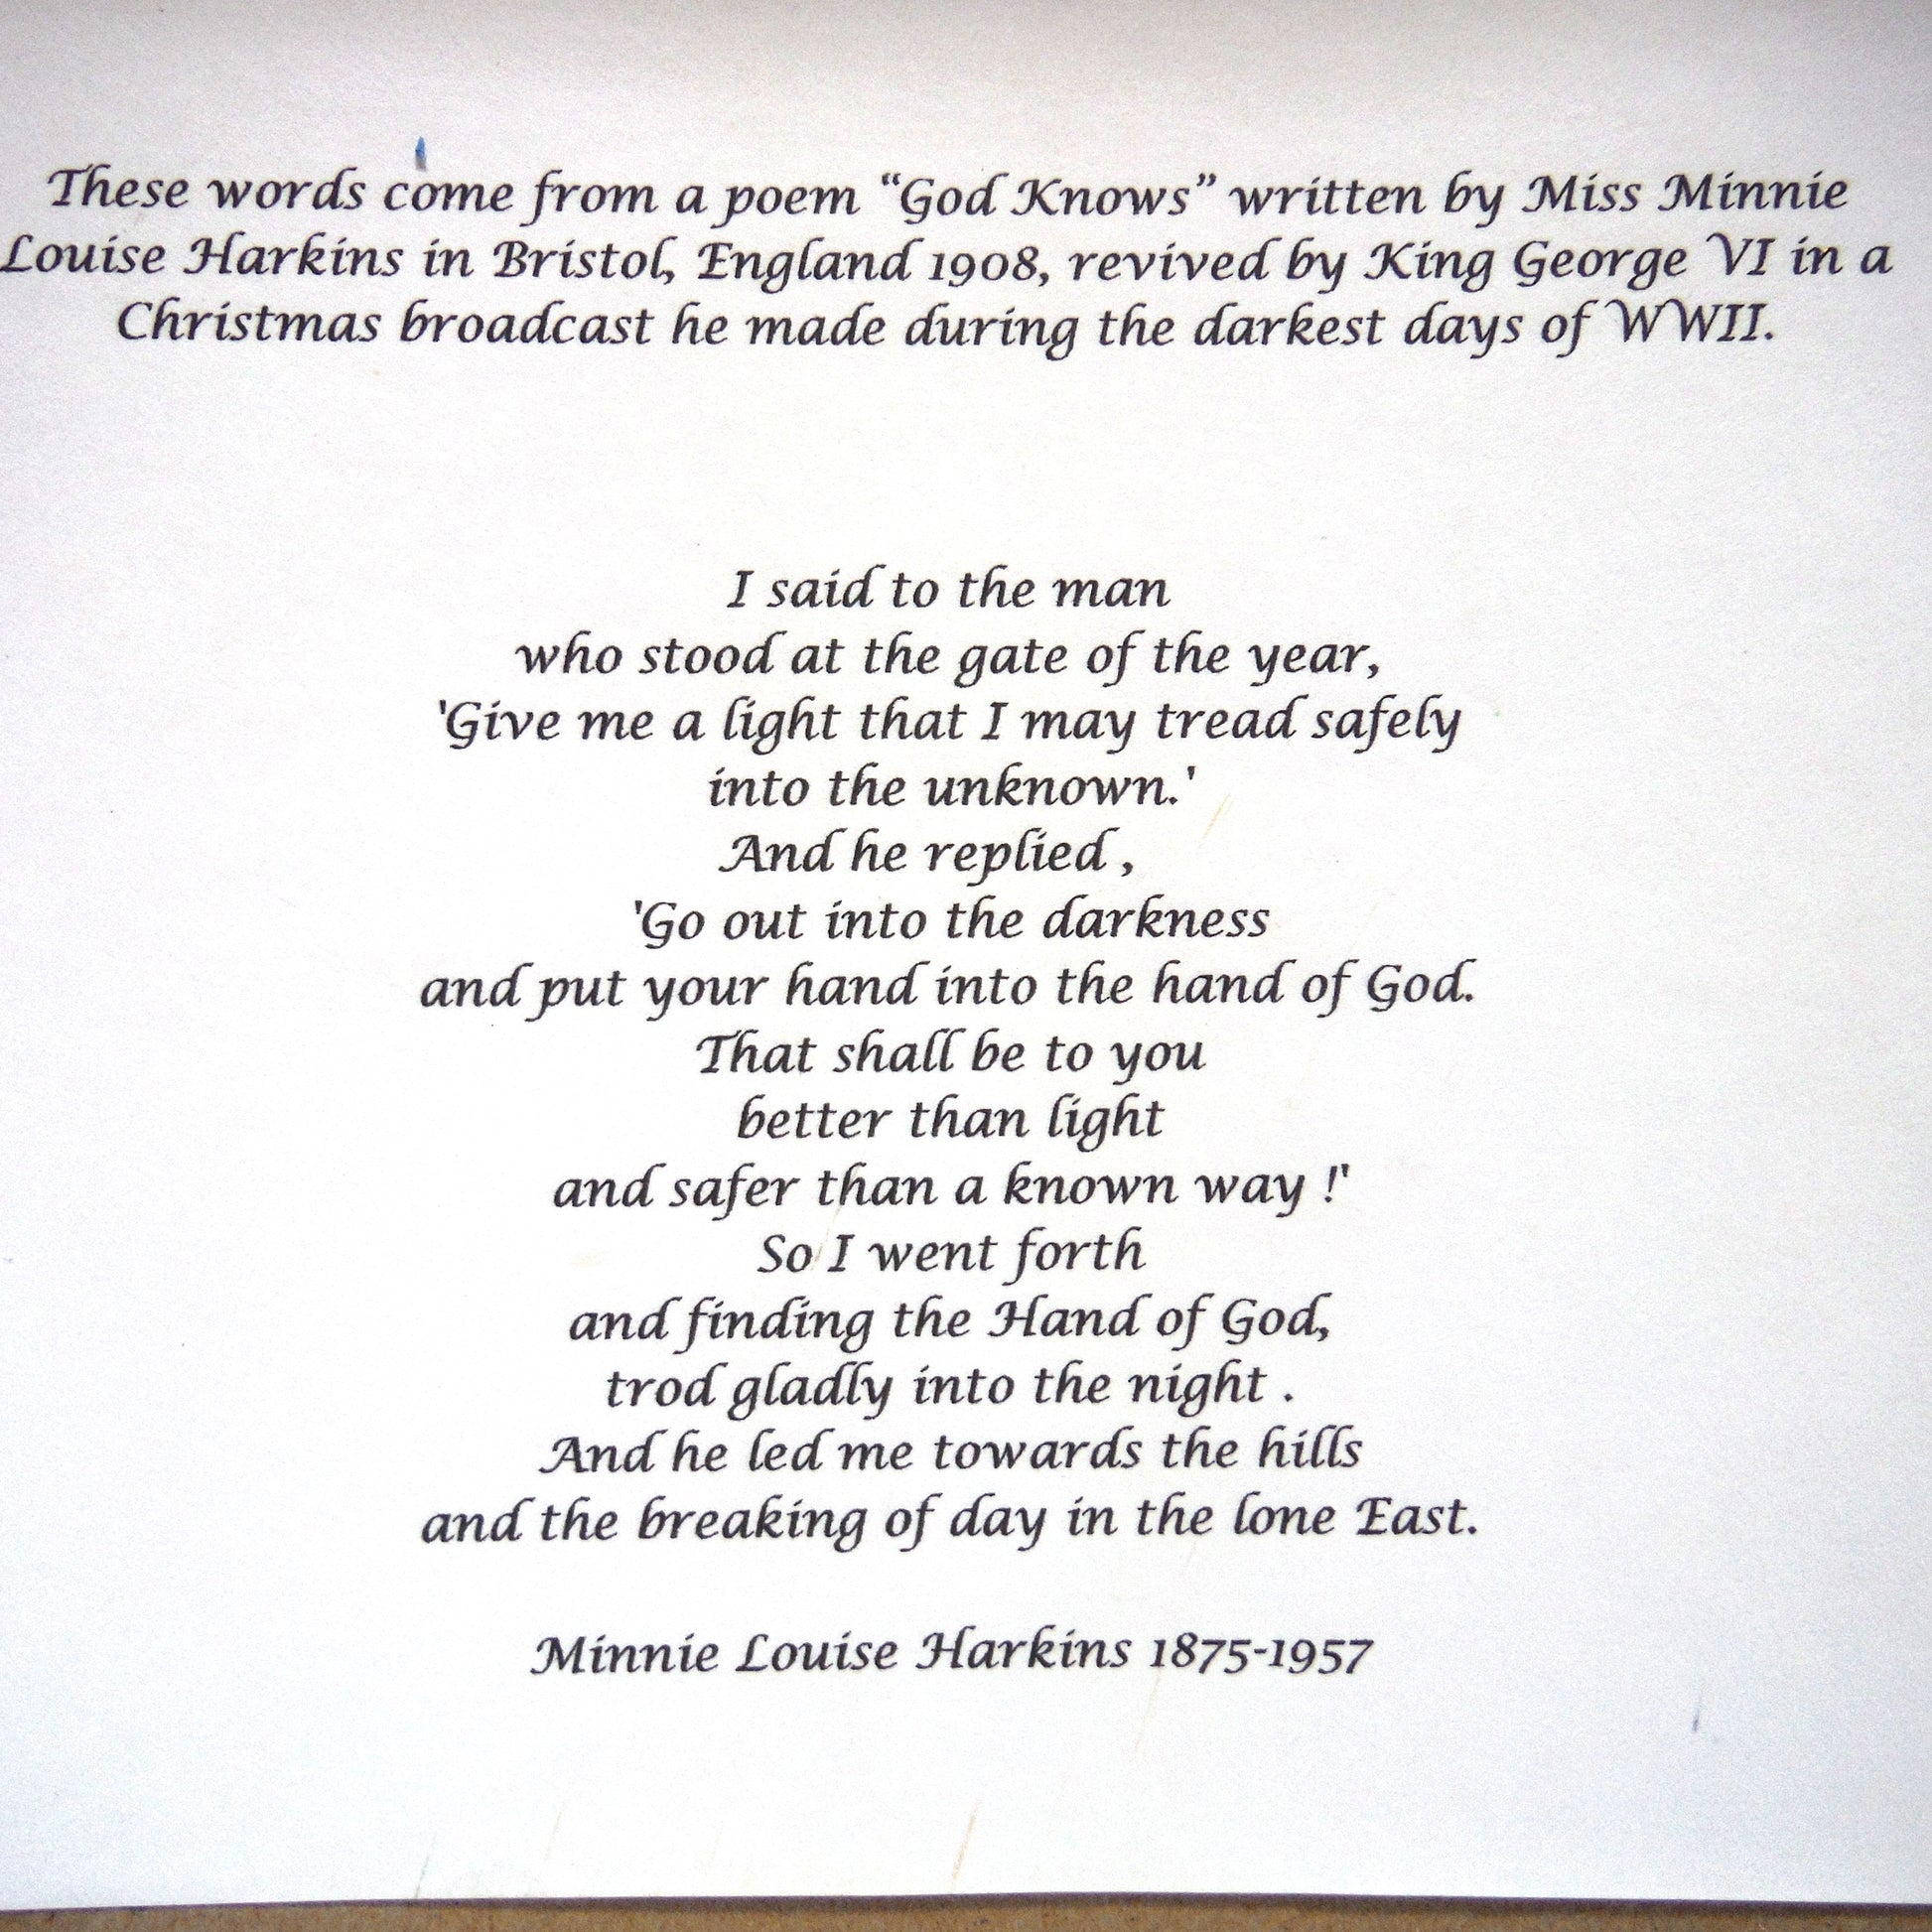 These words come from a poem “God Knows” written by Miss Minnie
Louise Harkins in Bristol, England 1908, revived by King George VI in a
Christmas broadcast he made during the darkest days of WWII.
I said to the man
who stood at the gate of the year,
'Give me a light that I may tread safely
into the unknown.'
And he replied ,
'Go out into the darkness
and put your hand into the hand of God.
That shall be to you
better than light
and safer than a known way !'
So I went forth
and finding the Hand of God,
trod gladly into the night .
And he led me towards the hills
and the breaking of day in the lone East.
Minnie Louise Harkins 1875-1957